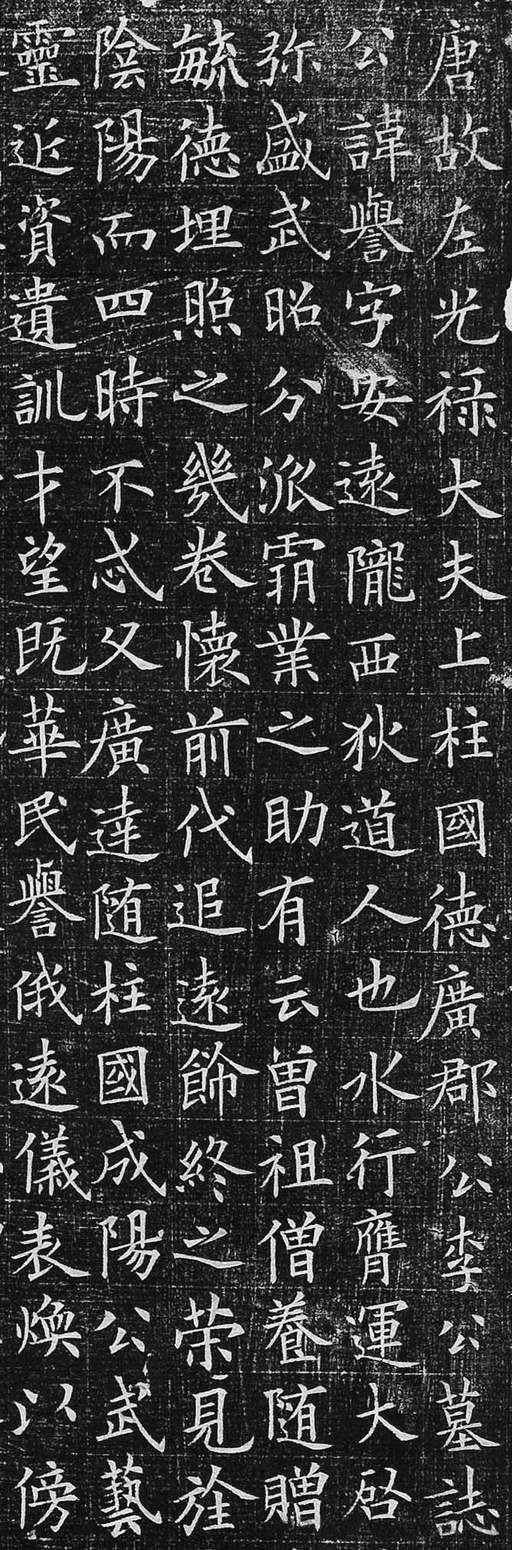 唐故左光禄大夫上柱國德廣郡公李公墓誌
公諱譽字安遠隴西狄道人也水行膺運大啓
弥盛武昭分派霸業之助有云曽祖僧養随贈
毓德埋照之㡬卷懷前代追遠餙終之荣見旌
陰陽而四時不忒父廣達随柱國成陽公武藝
靈近資遺訓才望既華民譽俄遠儀表煥以傍